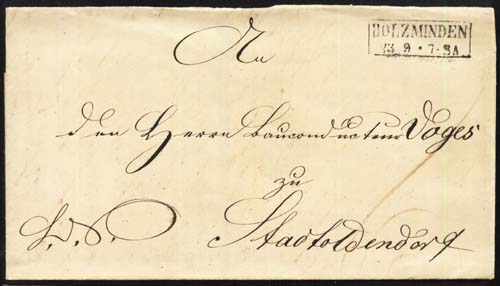 HOLZMINDEN
23 9 • 7-8A
An
den Herrn Bauconducteur Voges
zu
Stadtoldendorf